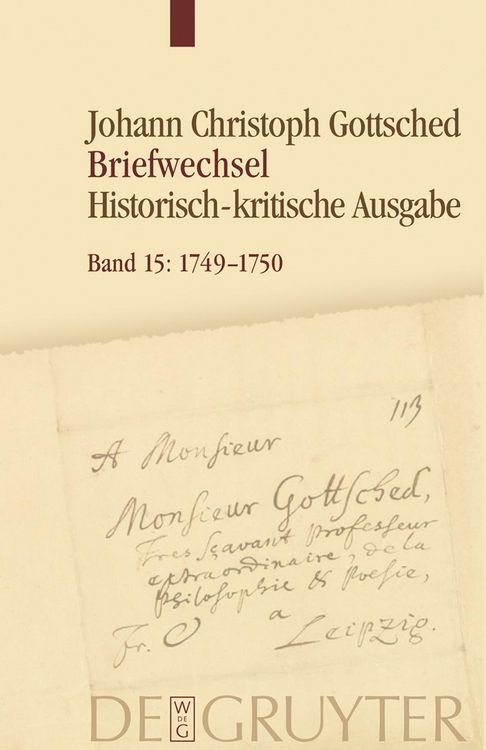 Johann Christoph Gottsched
Briefwechsel
Historisch-kritische Ausgabe
Band 15: 1749–1750
113
A Monsieur
Monsieur Gottsched,
Tres sçavant Professeur
extraordinaire, de la
Philosophie & Poesie,
a
Fr.
Leipzig.
DE GRUYTER
W
DE
G